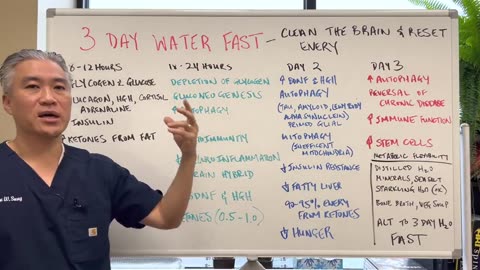 3 DAY WATER FAST - CLEAN THE BRAIN & RESET
EVERY
6-12 HOURS
GLYCOGEN & GLUCOSE
GLUCAGON, HGH, CORTISOL
ADRENALINE
INSULIN
KETONES FROM FAT
24 HOURS
DEPLETION OF GLYCOGEN
GLUCONEOGENESIS
AUTOPHAGY
IMMUNITY
BRAIN HYBRID
BDNF & HGH
(0.5-1.0)
DAY 2
↑ BDNF & HGH
↑ AUTOPHAGY
(TAU, AMYLOID, LEWY BODY
ALPHA SYNUCLEIN)
PRIMED GLIAL
MITOPHAGY
MITOCHONDRIA)
↓ INSULIN RESISTANCE
↓ FATTY LIVER
90-95% ENERGY
FROM KETONES
↓ HUNGER
DAY 3
↑ AUTOPHAGY
REVERSAL OF
CHRONIC DISEASE
↑ IMMUNE FUNCTION
↑ STEM CELLS
METABOLIC FLEXIBILITY
DISTILLED H2O
MINERALS, SEA SALT
SPARKLING H2O (OK)
BONE BROTH, VEG SOUP
ALT TO 3 DAY H2O
FAST